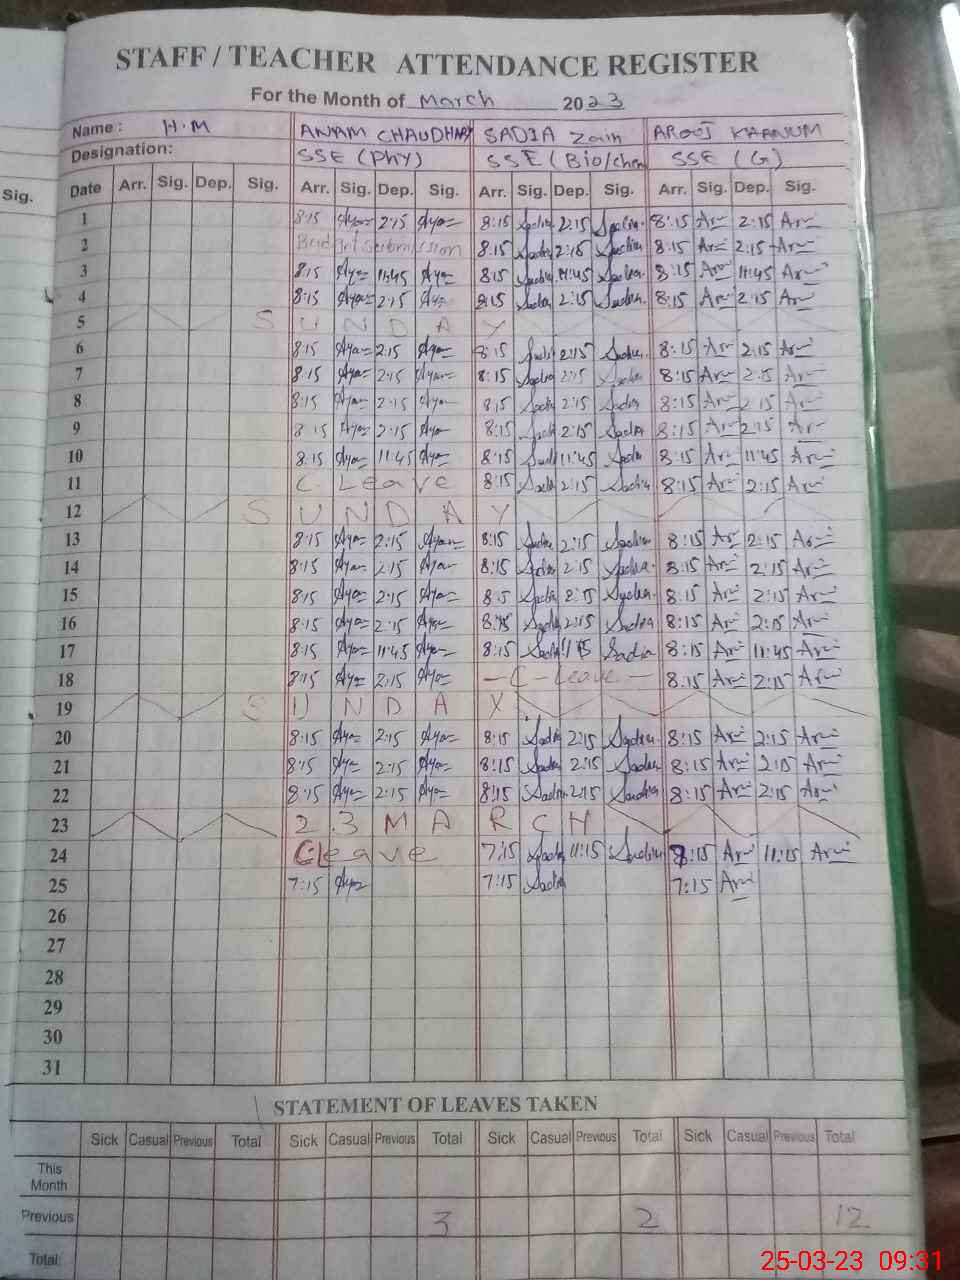 STAFF / TEACHER ATTENDANCE REGISTER
For the Month of March 2023
Name : H.M ANAM CHAUDHARY SADIA Zain AROOJ KHANUM
Designation: SSE (Phy) SSE (Bio/chem SSE (G)
Sig.
Date Arr. Sig. Dep. Sig. Arr. Sig. Dep. Sig. Arr. Sig. Dep. Sig. Arr. Sig. Dep. Sig.
1 8:15 2:15 8:15 Sadia 2:15 Sadia 8:15 2:15
2 Budget submission 8:15 Sadia 2:15 Sadia 8:15 2:15
3 8:15 11:45 8:15 Sadia 11:45 Sadia 8:15 11:45
4 8:15 2:15 8:15 Sadia 2:15 Sadia 8:15 2:15
5 S U N D A Y
6 8:15 2:15 8:15 2:15 Sadia 8:15 2:15
7 8:15 2:15 8:15 Sadia 2:15 Sadia 8:15 2:15
8 8:15 2:15 8:15 Sadia 2:15 Sadia 8:15 2:15
9 8:15 2:15 8:15 2:15 Sadia 8:15 2:15
10 8:15 11:45 8:15 11:45 Sadia 8:15 11:45
11 C. Leave 8:15 Sadia 2:15 Sadia 8:15 2:15
12 S U N D A Y
13 8:15 2:15 8:15 Sadia 2:15 Sadia 8:15 2:15
14 8:15 2:15 8:15 Sadia 2:15 Sadia 8:15 2:15
15 8:15 2:15 Sadia Sadia 8:15 2:15
16 8:15 2:15 8:15 Sadia 2:15 Sadia 8:15 2:15
17 8:15 11:45 8:15 Sadia Sadia 8:15 11:45
18 8:15 2:15 - C - Leave - 8:15 2:15
19 S U N D A Y
20 8:15 2:15 8:15 Sadia 2:15 Sadia 8:15 2:15
21 8:15 2:15 8:15 Sadia 2:15 Sadia 8:15 2:15
22 8:15 2:15 8:15 Sadia 2:15 Sadia 8:15 2:15
23 2 3 M A R C H
24 C Leave 7:15 Sadia 11:15 Sadia 8:15 11:15
25 7:15 7:15 Sadia 7:15
26
27
28
29
30
31
STATEMENT OF LEAVES TAKEN
Sick Casual Previous Total Sick Casual Previous Total Sick Casual Previous Total Sick Casual Previous Total
This Month
Previous 3 2 12
Total:
25-03-23 09:31